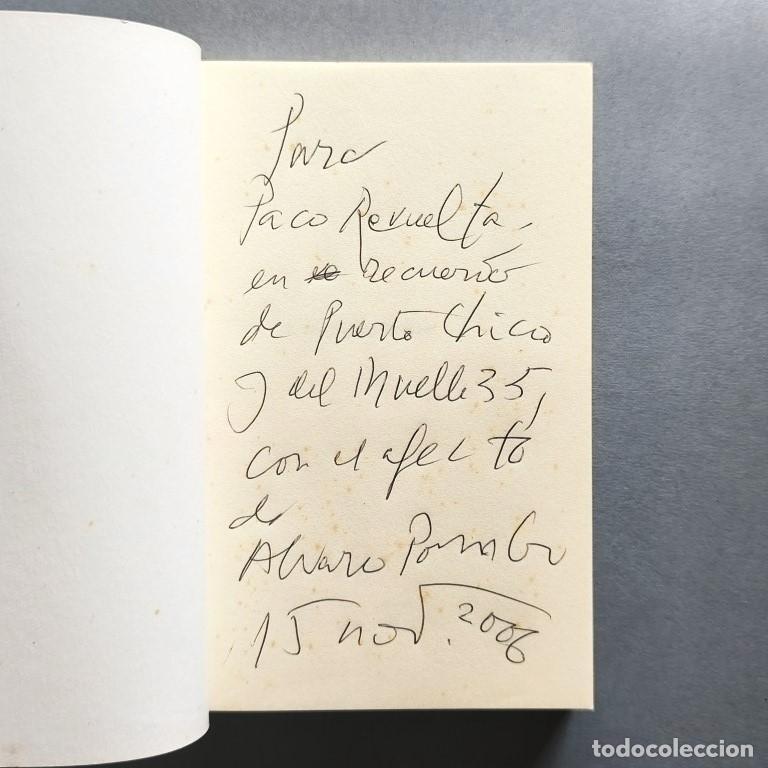 Para
Paco Revuelta,
en recuerdo
de Puerto Chico
y del Muelle 35,
con el afecto
de
Alvaro Pombo
15 nov. 2006
todocoleccion